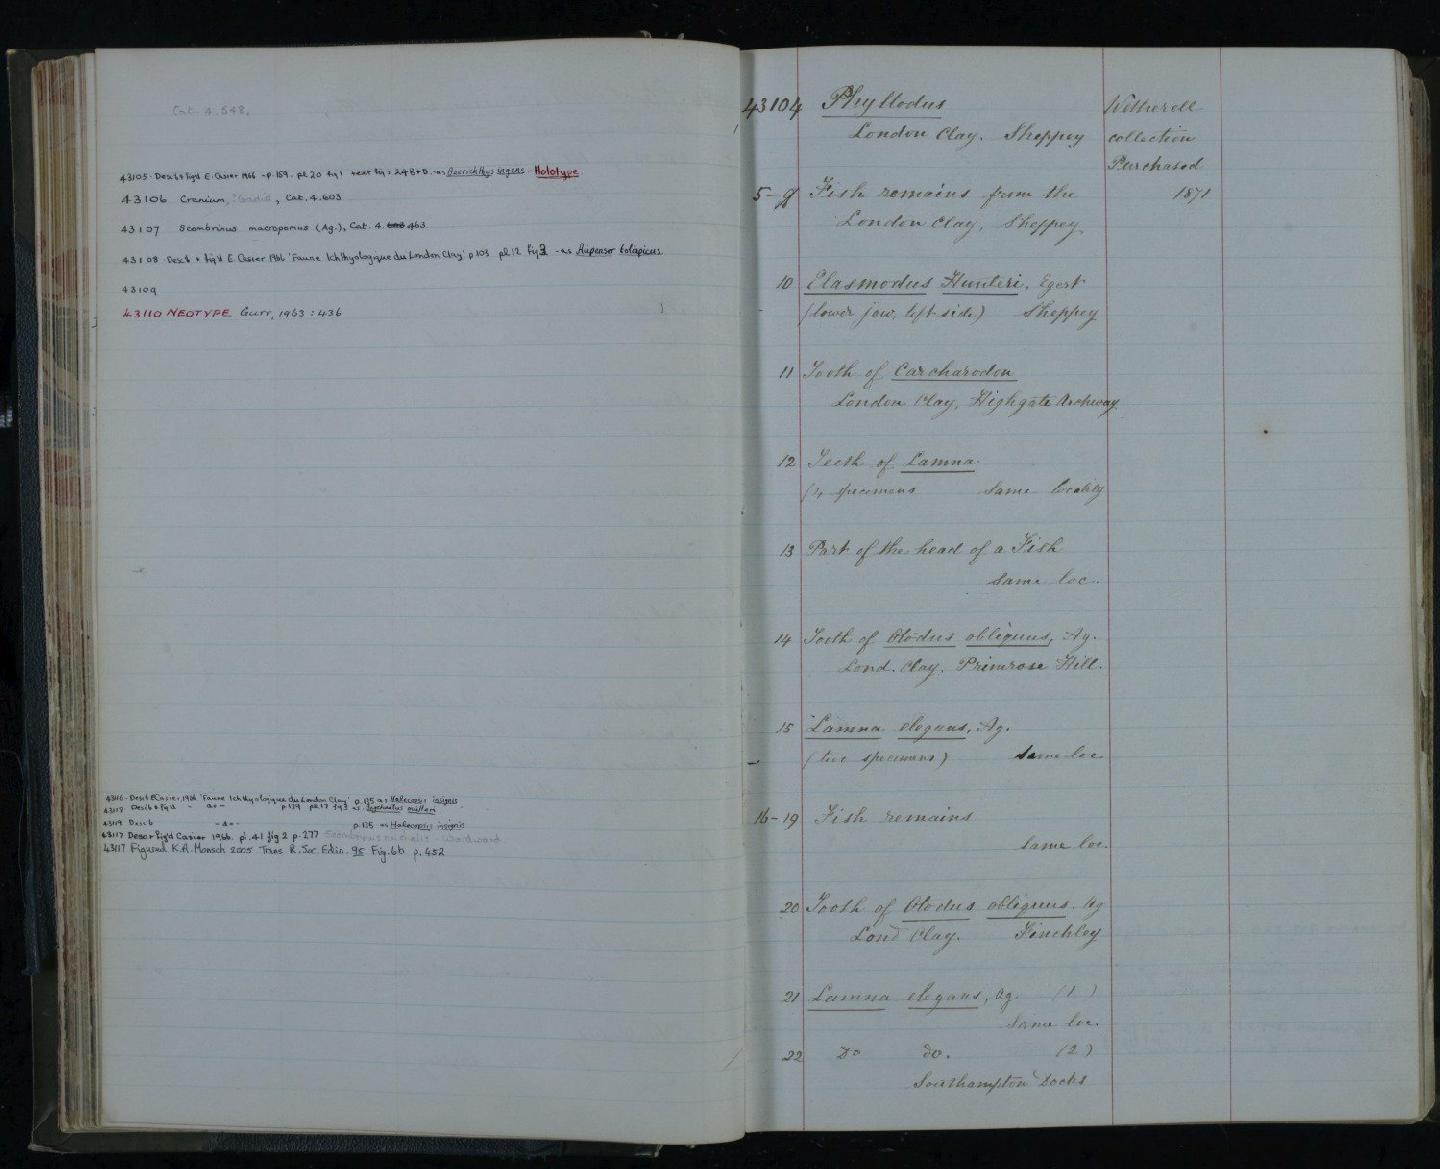 Cat. 4.548.
43105. Descb & fig'd E. Casier 1966 - p.159. pl 20 fig 1 text figs 24 B+D. as ingens Holotype
43106 Cranium, Gadid, Cat. 4.603
43107 Scombrinus macropomus (Ag.), Cat. 4. 603 463
43108. Descb & fig'd E. Casier 1966 'Faune Ichthyologique du London Clay' p 103 pl 12 fig 3 - as toliapicus
43109
43110 NEOTYPE Gurr, 1963 : 436
43116. Descb E Casier, 1966 'Faune Ichthyologique du London Clay' p.135 as Halecopsis insignis
43118. Descb & fig'd - do - p 129 pl 17 fig 3 as mülleri
43119 Descb - do - p.135 as Halecopsis insignis
43117 Desc & fig'd Casier 1966. pl. 41 fig 2 p. 277 Scombrinus nuchalis - Woodward
43117 Figured K.A. Monsch 2005 Trans R. Soc. Edin. 95 Fig. 6b p. 452
43104 Phyllodus
London Clay. Sheppey
Wetherell
collection
Purchased
1871
5-9 Fish remains from the
London Clay, Sheppey
10 Elasmodus Hunteri, Egert
(lower jaw, left side) Sheppey
11 Tooth of Carcharodon
London Clay, Highgate Archway
12 Teeth of Lamna
(4 specimens same locality
13 Part of the head of a Fish
same loc.
14 Tooth of Otodus obliquus, Ag.
Lond. Clay. Primrose Hill.
15 Lamna elegans, Ag.
(two specimens) same loc
16-19 Fish remains
same loc.
20 Tooth of Otodus obliquus Ag
Lond Clay. Finchley
21 Lamna elegans, Ag. (1)
same loc.
22 Do do. (2)
Southampton Docks